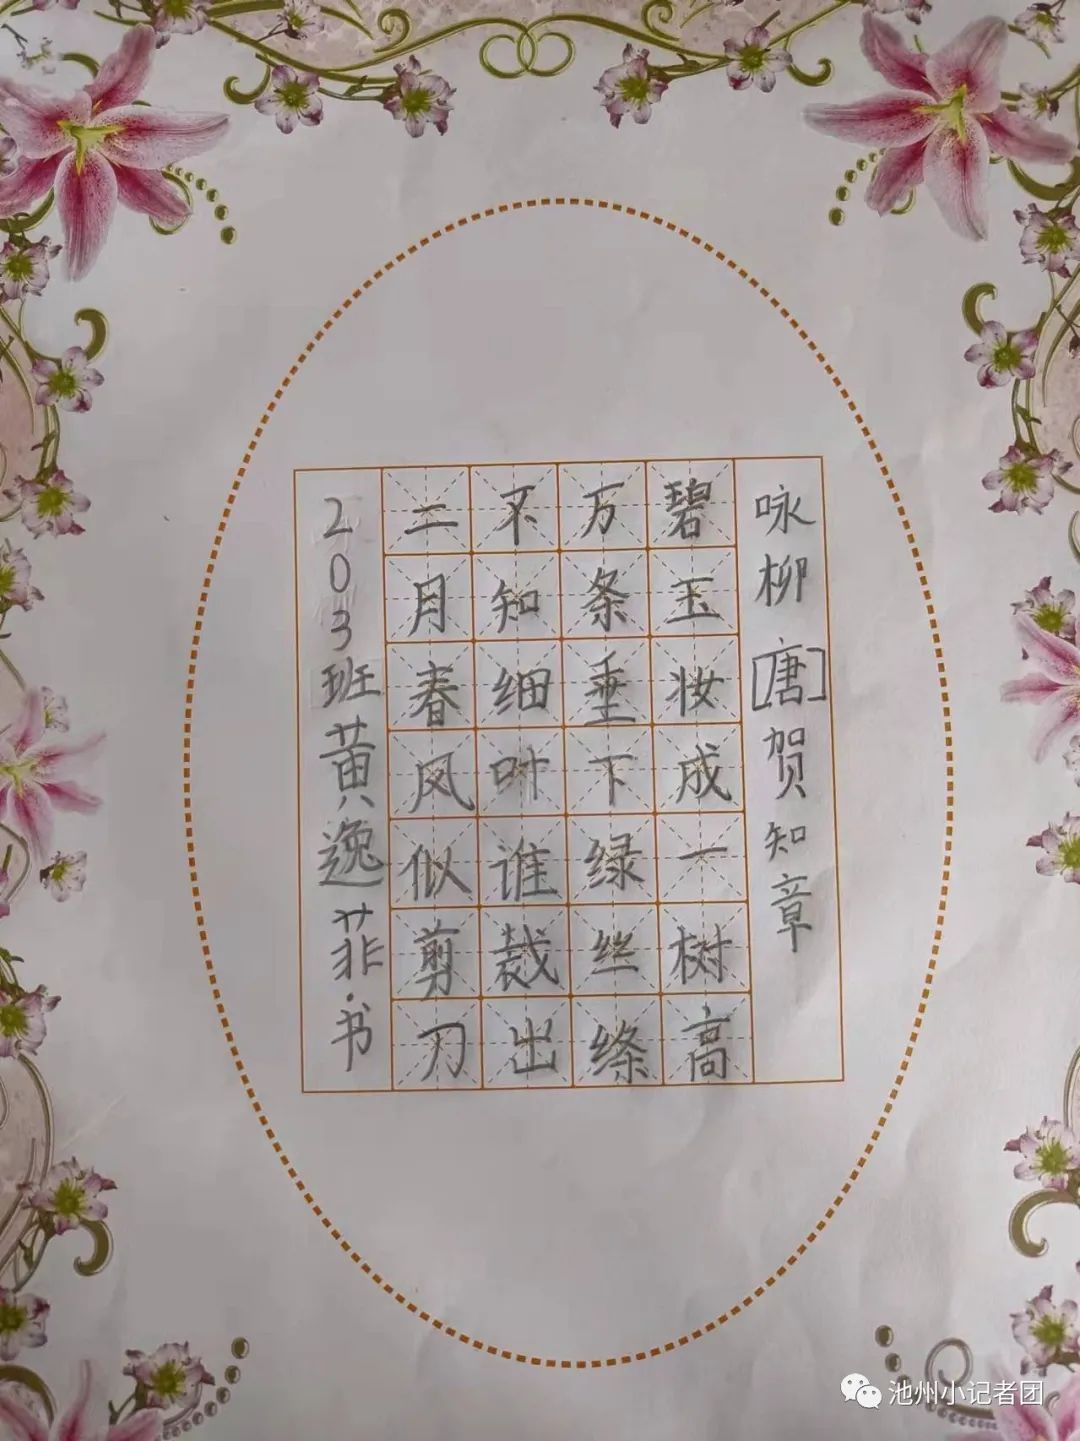 咏柳[唐]贺知章
碧玉妆成一树高
万条垂下绿丝绦
不知细叶谁裁出
二月春风似剪刀
203班黄逸菲书
池州小记者团